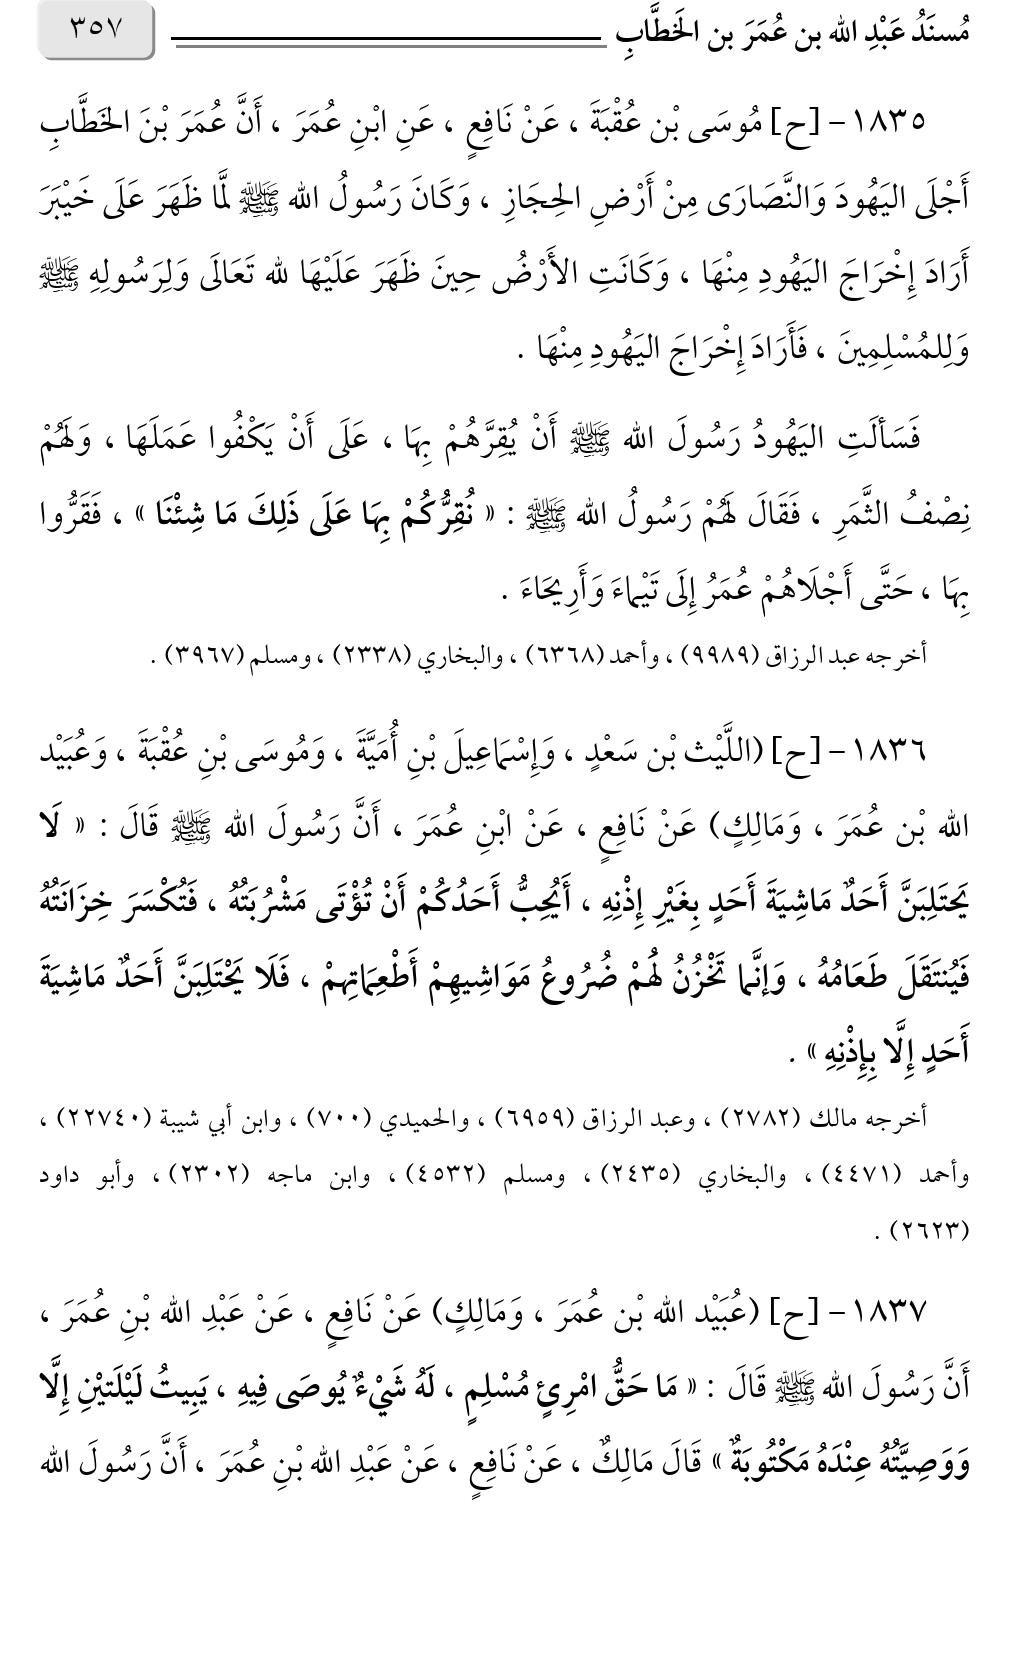 مُسنَدُ عَبْدِ الله بن عُمَرَ بن الخَطَّابِ ٣٥٧
١٨٣٥ – [ح] مُوسَى بْن عُقْبَةَ ، عَنْ نَافِعٍ ، عَنِ ابْنِ عُمَرَ ، أَنَّ عُمَرَ بْنَ الخَطَّابِ
أَجْلَى اليَهُودَ وَالنَّصَارَى مِنْ أَرْضِ الحِجَازِ ، وَكَانَ رَسُولُ الله ﷺ لمَّا ظَهَرَ عَلَى خَيْبَرَ
أَرَادَ إِخْرَاجَ اليَهُودِ مِنْهَا ، وَكَانَتِ الأَرْضُ حِينَ ظَهَرَ عَلَيْهَا لله تَعَالَى وَلِرَسُولِهِ ﷺ
وَلِلمُسْلِمِينَ ، فَأَرَادَ إِخْرَاجَ اليَهُودِ مِنْهَا .
فَسَأَلَتِ اليَهُودُ رَسُولَ الله ﷺ أَنْ يُقِرَّهُمْ بِهَا ، عَلَى أَنْ يَكْفُوا عَمَلَهَا ، وَلَهُمْ
نِصْفُ الثَّمَرِ ، فَقَالَ لَهُمْ رَسُولُ الله ﷺ : « نُقِرُّكُمْ بِهَا عَلَى ذَلِكَ مَا شِئْنَا » ، فَقَرُّوا
بِهَا ، حَتَّى أَجْلَاهُمْ عُمَرُ إِلَى تَيْمَاءَ وَأَرِيحَاءَ .
أخرجه عبد الرزاق (٩٩٨٩) ، وأحمد (٦٣٦٨) ، والبخاري (٢٣٣٨) ، ومسلم (٣٩٦٧) .
١٨٣٦ – [ح] (اللَّيْث بْن سَعْدٍ ، وَإِسْمَاعِيلَ بْنِ أُمَيَّةَ ، وَمُوسَى بْنِ عُقْبَةَ ، وَعُبَيْد
الله بْن عُمَرَ ، وَمَالِكٍ) عَنْ نَافِعٍ ، عَنْ ابْنِ عُمَرَ ، أَنَّ رَسُولَ الله ﷺ قَالَ : « لَا
يَحتَلِبَنَّ أَحَدٌ مَاشِيَةَ أَحَدٍ بِغَيْرِ إِذْنِهِ ، أَيُحِبُّ أَحَدُكُمْ أَنْ تُؤْتَى مَشْرُبَتُهُ ، فَتُكْسَرَ خِزَانَتُهُ
فَيُنتَقَلَ طَعَامُهُ ، وَإِنَّما تَخْزُنُ لَهُمْ ضُرُوعُ مَوَاشِيهِمْ أَطْعِمَاتِهِمْ ، فَلَا يَحْتَلِبَنَّ أَحَدٌ مَاشِيَةَ
أَحَدٍ إِلَّا بِإِذْنِهِ » .
أخرجه مالك (٢٧٨٢) ، وعبد الرزاق (٦٩٥٩) ، والحميدي (٧٠٠) ، وابن أبي شيبة (٢٢٧٤٠) ،
وأحمد (٤٤٧١) ، والبخاري (٢٤٣٥) ، ومسلم (٤٥٣٢) ، وابن ماجه (٢٣٠٢) ، وأبو داود
(٢٦٢٣) .
١٨٣٧ – [ح] (عُبَيْد الله بْن عُمَرَ ، وَمَالِكٍ) عَنْ نَافِعٍ ، عَنْ عَبْدِ الله بْنِ عُمَرَ ،
أَنَّ رَسُولَ الله ﷺ قَالَ : « مَا حَقُّ امْرِئٍ مُسْلِمٍ ، لَهُ شَيْءٌ يُوصَى فِيهِ ، يَبِيتُ لَيْلَتيْنِ إِلَّا
وَوَصِيَّتُهُ عِنْدَهُ مَكْتُوبَةٌ » قَالَ مَالِكٌ ، عَنْ نَافِعٍ ، عَنْ عَبْدِ الله بْنِ عُمَرَ ، أَنَّ رَسُولَ الله